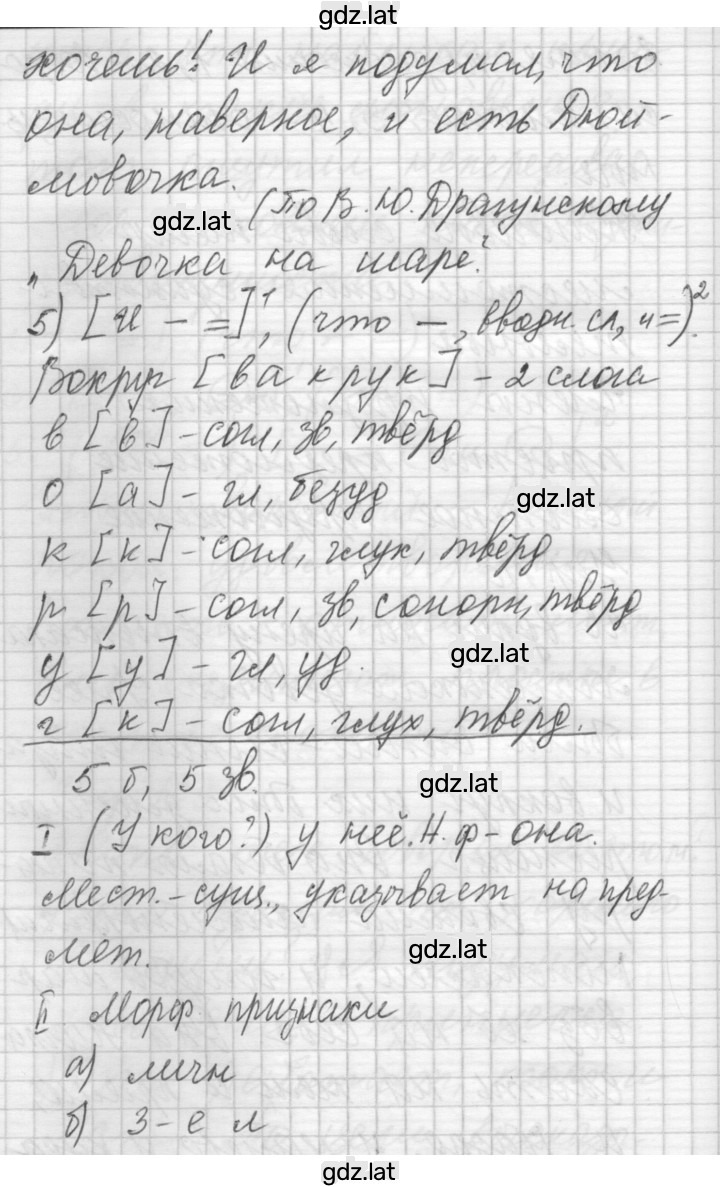 gdz.lat
хочешь! И я подумал, что
она, наверное, и есть Дюй-
мовочка.
gdz.lat
(По В. Ю. Драгунскому
„Девочка на шаре“.)
5) [И – =]¹, (что –, вводн. сл, и =)².
Вокруг [вакрук] – 2 слога
в [в] – согл, зв, твёрд
о [а] – гл, безуд
gdz.lat
к [к] – согл, глух, твёрд
р [р] – согл, зв, сонорн, твёрд
у [у] – гл, уд.
gdz.lat
г [к] – согл, глух, твёрд.
5 б, 5 зв.
gdz.lat
I (У кого?) у неё. Н. ф – она.
Мест. – сущ., указывает на пред-
мет.
gdz.lat
II Морф признаки
а) личн
б) 3-е л
gdz.lat